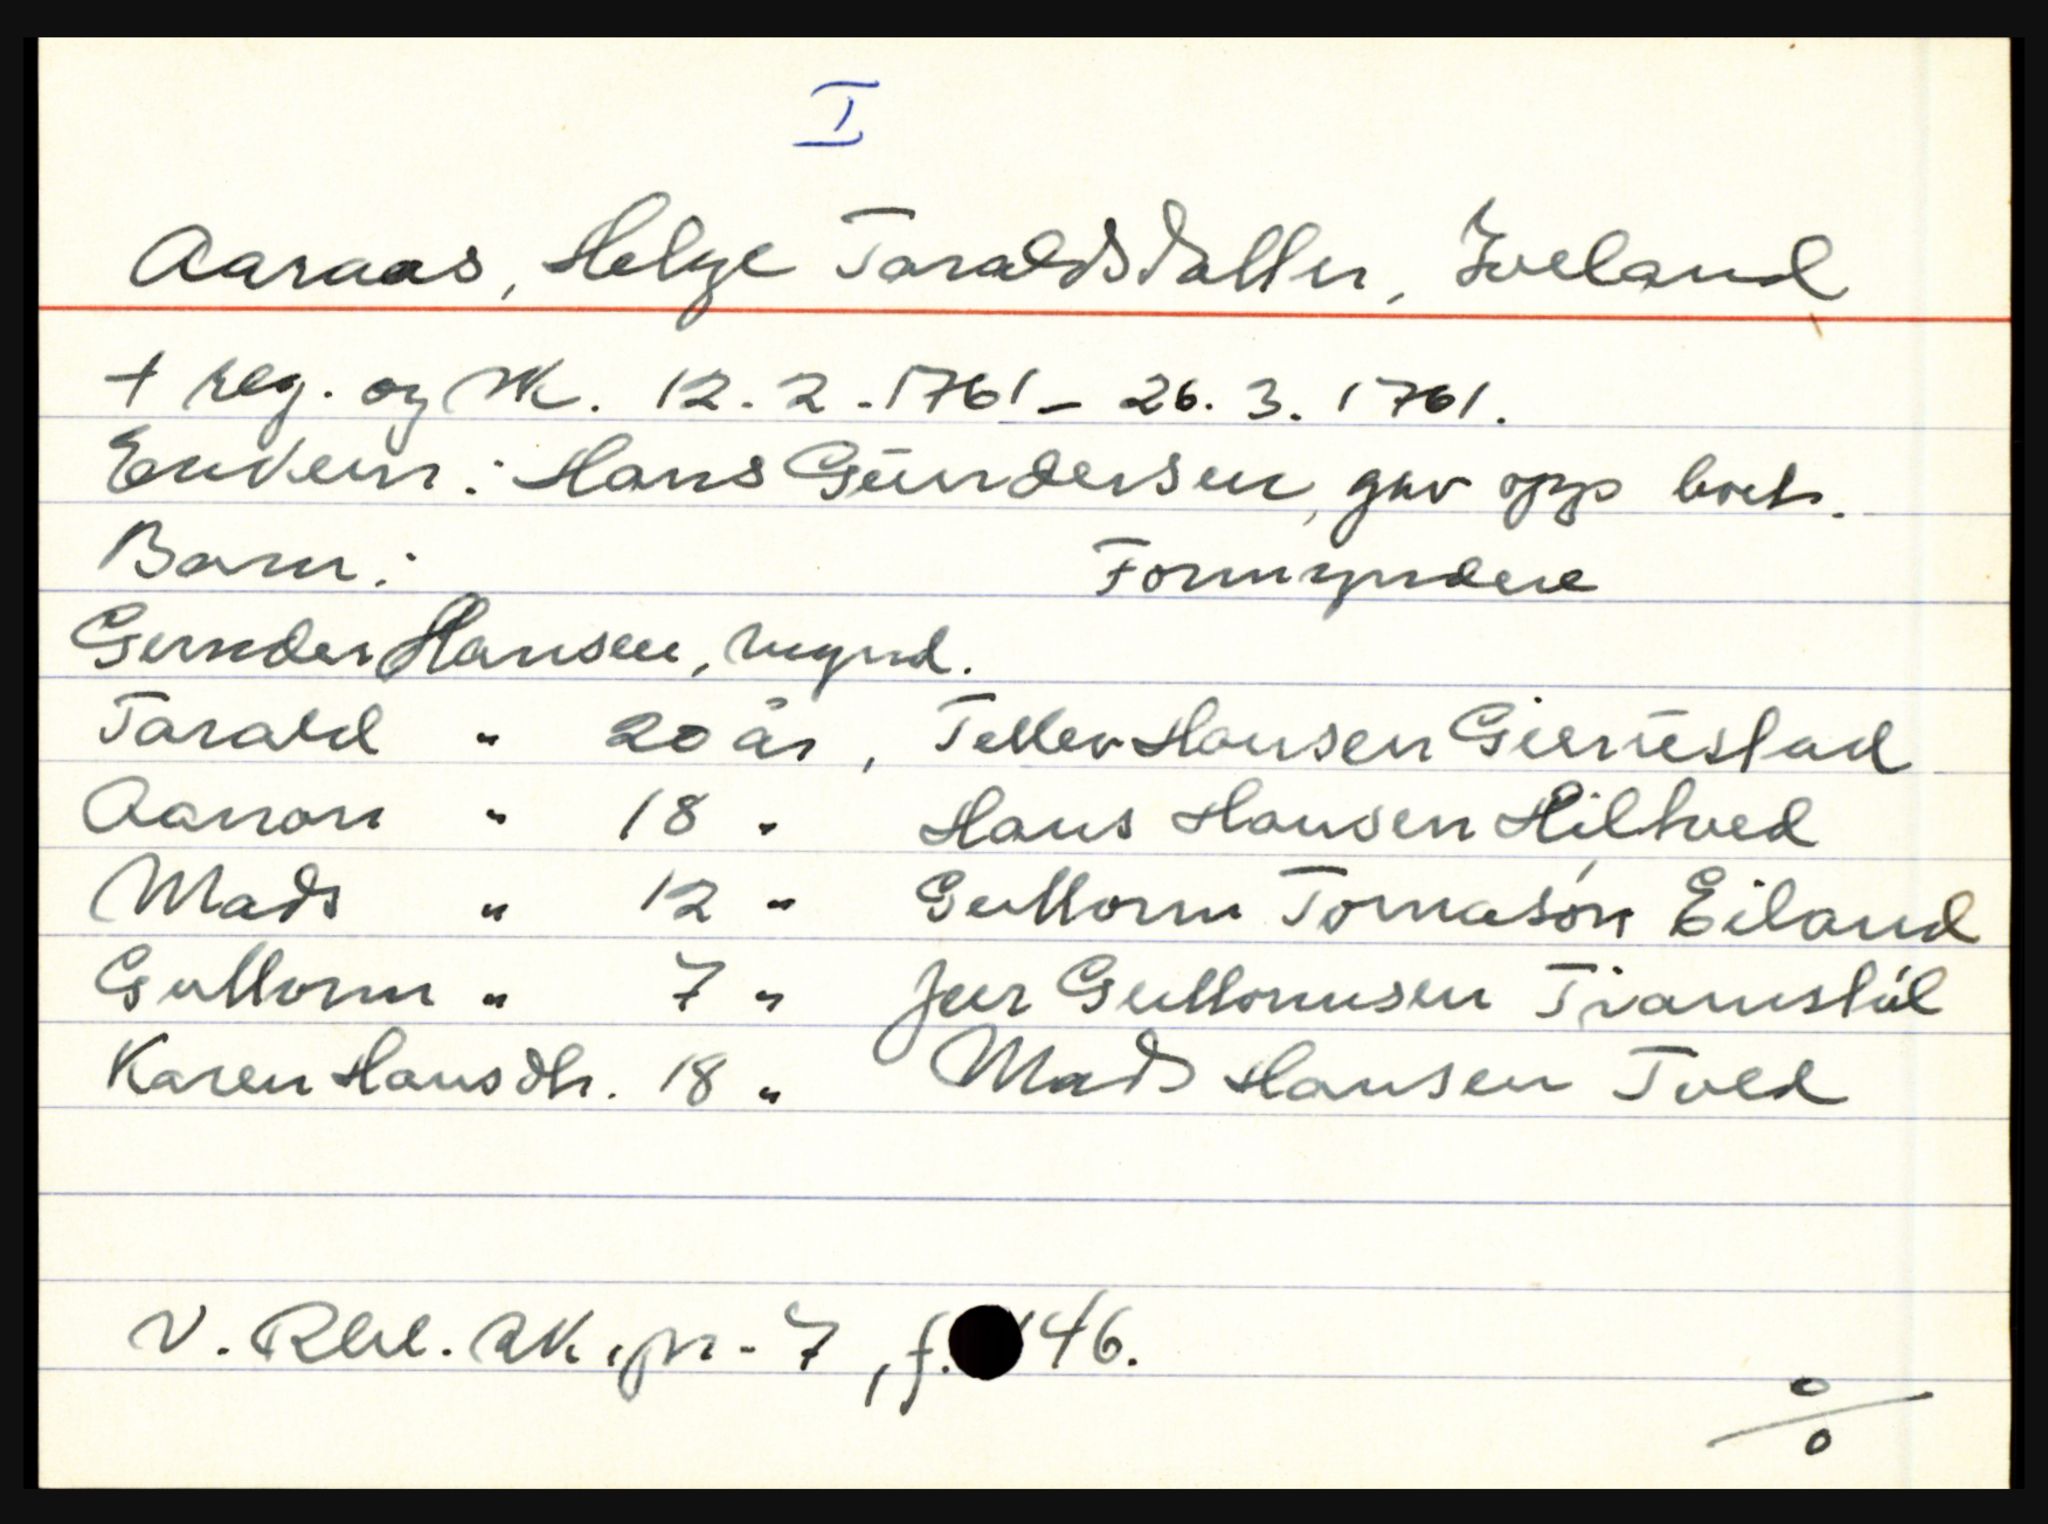 I
Aaraas, Helge Taraldsdatter, Iveland
+ reg. og sk. 12.2.1761 - 26.3.1761.
Enkem: Hans Gundersen, gav opp boets.
Barn: Formyndere
Gunder Hansen, mynd.
Tarald " 20 år, Tellev Hansen Giernestad
Aanon " 18 " Hans Hansen Hiltved
Mads " 12 " Guttorm Tomasön Eiland
Guttorm " 7 " Guttormsen
Karen Hansdtr. 18 " Mads Hansen Tved
V. Rbl. sk.pr. 7, f. 146.